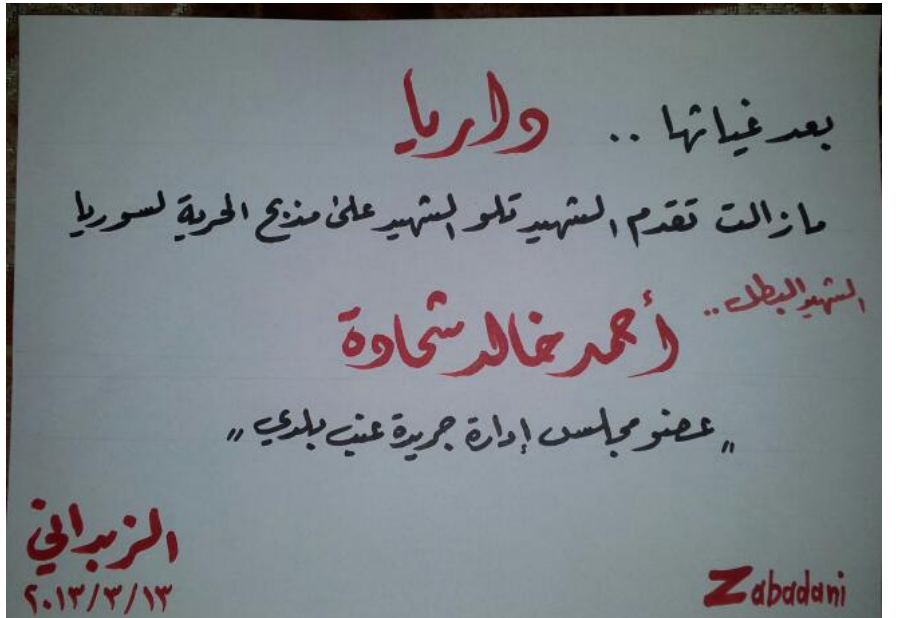 بعد غياثها .. داريا
مازالت تقدم الشهيد تلو الشهيد على مذبح الحرية لسوريا
الشهيد البطل ..
أحمد خالد شحادة
"عضو مجلس إدارة جريدة عنب بلدي"
الزبداني
٢٠١٣/٣/١٣
Zabadani